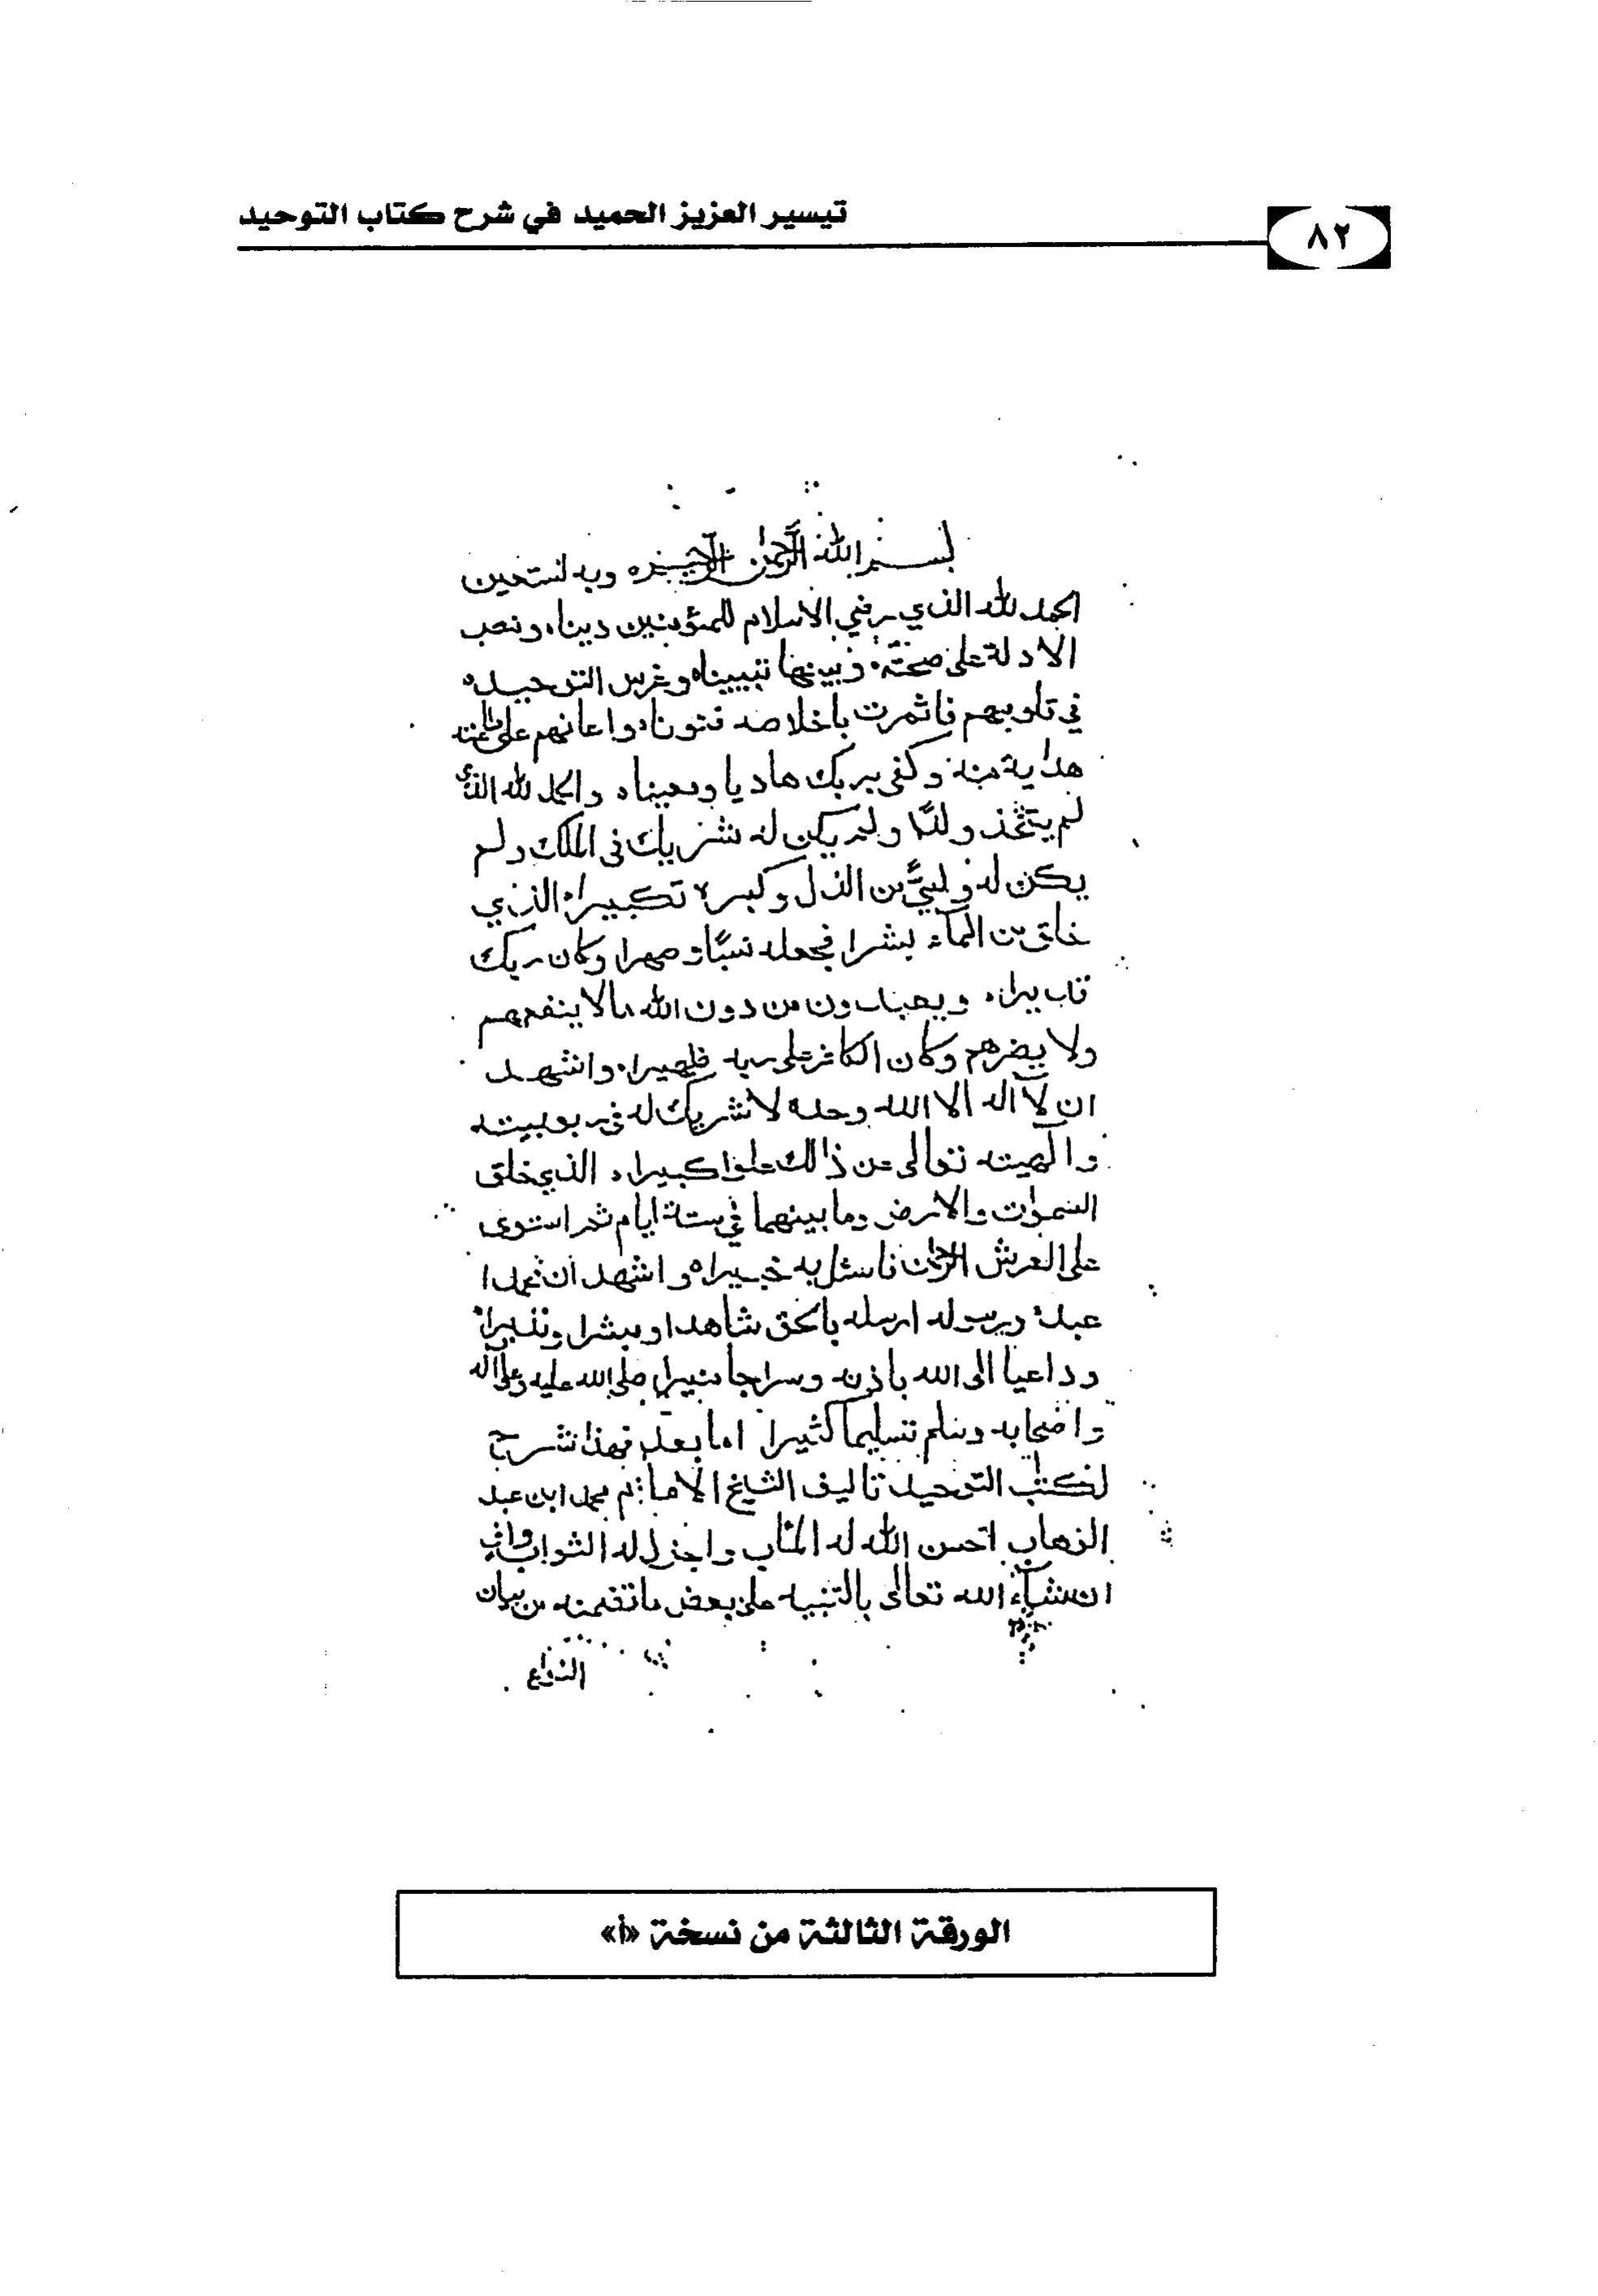 تيسير العزيز الحميد في شرح كتاب التوحيد
٨٢
بسم الله الرحمن الرحيم وبه نستعين
الحمد لله الذي رضي الاسلام للمؤمنين دينا ونصب
الادلة على صحته وبينها تبيينا وغرس التوحيد
في قلوبهم فاثمرت باخلاصه فنونا واعانهم على طاعته
هداية منه وكفى بربك هاديا ومعينا والحمد لله الذي
لم يتخذ ولدًا ولم يكن له شريك في الملك ولم
يكن له وليٌّ من الذل وكبره تكبيرا الذي
خلق من المآء بشرا فجعله نسبًا وصهرا وكان ربك
قديرا ويعبدون من دون الله مالا ينفعهم
ولا يضرهم وكان الكافر على ربه ظهيرا واشهد
ان لآ اله الا الله وحده لا شريك له في ربوبيته
والهيته تعالى عن ذالك علوا كبيرا الذي خلق
السموات والارض وما بينهما في ستة ايام ثم استوى
على العرش الرحمن فاسئل به خبيرا واشهد ان محمدا
عبده ورسوله ارسله بالحق شاهدا ومبشرا ونذيرا
وداعيا الى الله باذنه وسراجا منيرا صلى الله عليه وعلى اله
واصحابه وسلم تسليما كثيرا اما بعد فهذا شرح
لكتاب التوحيد تاليف الشيخ الامام محمد ابن عبد
الوهاب احسن الله له المئاب واجزل له الثواب وافٍ
ان شآء الله تعالى بالتنبيه على بعض ما تضمنه من بيان
انواع
الورقة الثالثة من نسخة «أ»